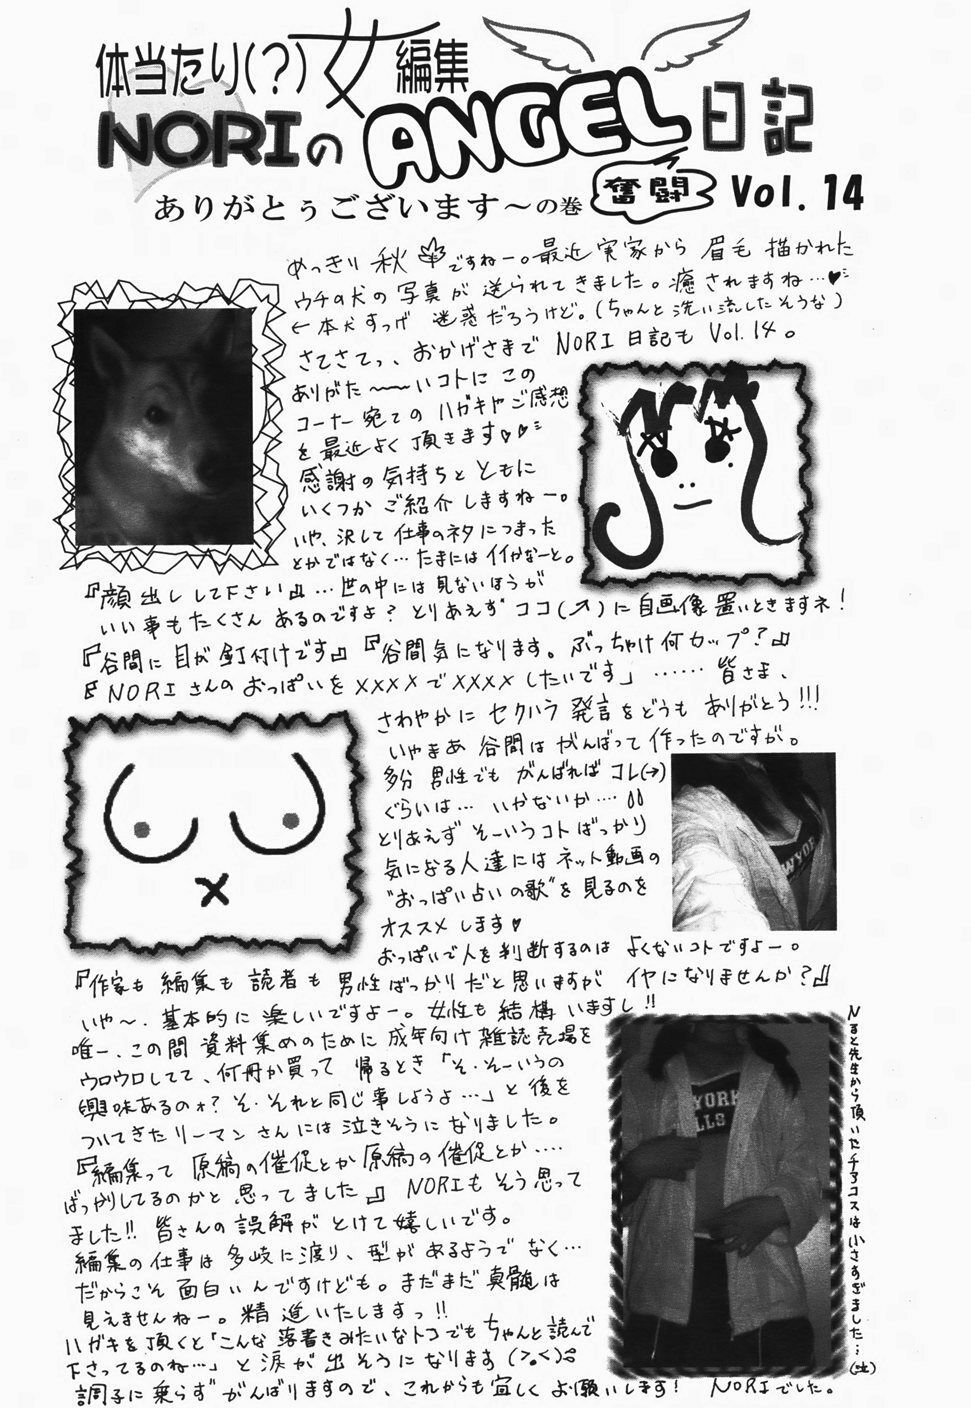 体当たり(?)女編集
NORIのANGEL日記
奮闘
ありがとぅございます～の巻
Vol. 14
めっきり秋ですねー。最近実家から眉毛描かれた
ウチの犬の写真が送られてきました。癒されますね…♥
←本犬すっげ迷惑だろうけど。(ちゃんと洗い流したそうな)
さてさてっ、おかげさまでNORI日記もVol.14。
ありがた～～いコトにこの
コーナー宛てのハガキやご感想
を最近よく頂きます♡♡
感謝の気持ちとともに
いくつかご紹介しますねー。
いや、決して仕事のネタにつまった
とかではなく…たまにはイイかなーと。
『顔出しして下さい』…世の中には見ないほうが
いい事もたくさんあるのですよ?とりあえずココ(↗)に自画像置いときますネ!
『谷間に目が釘付けです』『谷間気になります。ぶっちゃけ何カップ?』
『NORIさんのおっぱいをXXXXでXXXXしたいです」……皆さま、
さわやかにセクハラ発言をどうもありがとう!!!
いやまあ谷間はがんばって作ったのですが。
多分男性でもがんばればコレ(→)
ぐらいは…いかないか…
とりあえずそーいうコトばっかり
気になる人達にはネット動画の
“おっぱい占いの歌”を見るのを
オススメします♥
おっぱいで人を判断するのはよくないコトですよー。
『作家も編集も読者も男性ばっかりだと思いますがイヤになりませんか?』
いや～、基本的に楽しいですよー。女性も結構いますし!!
唯一、この間資料集めのために成年向け雑誌売場を
ウロウロしてて、何冊か買って帰るとき「そ・そーいうの
興味あるのォ?そ・それと同じ事しようよ…」と後を
ついてきたリーマンさんには泣きそうになりました。
『編集って原稿の催促とか原稿の催促とか…
ばっかりしてるのかと思ってました』NORIもそう思って
ました!!皆さんの誤解がとけて嬉しいです。
編集の仕事は多岐に渡り、型があるようでなく…
だからこそ面白いんですけども。まだまだ真髄は
見えませんねー。精進いたしますっ!!
ハガキを頂くと「こんな落書きみたいなトコでもちゃんと読んで
下さってるのね…」と涙が出そうになります(>。<)
調子に乗らずがんばりますので、これからも宜しくお願いします!NORIでした。
NEW YORK
YORK
LLS
先生から頂いたチアコスは小さすぎました…(泣)